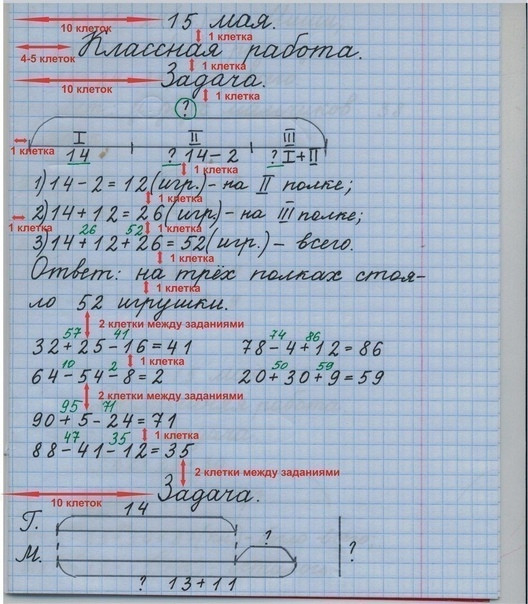 10 клеток 15 мая.
1 клетка
4-5 клеток Классная работа.
1 клетка
10 клеток Задача.
1 клетка
?
1 клетка I II III
14 ? 14-2 ? I+II
1 клетка
1) 14-2=12(игр.)- на II полке;
1 клетка
2) 14+12=26(игр.)- на III полке;
1 клетка 26 52 1 клетка
3) 14+12+26=52(игр.)- всего.
1 клетка
Ответ: на трёх полках стоя-
1 клетка
ло 52 игрушки.
2 клетки между заданиями
57 41 74 86
32+25-16=41 78-4+12=86
1 клетка
10 2 50 59
64-54-8=2 20+30+9=59
2 клетки между заданиями
95 71
90+5-24=71
47 35 1 клетка
88-41-12=35
2 клетки между заданиями
10 клеток Задача.
14
Г.
? ?
М.
? 13+11